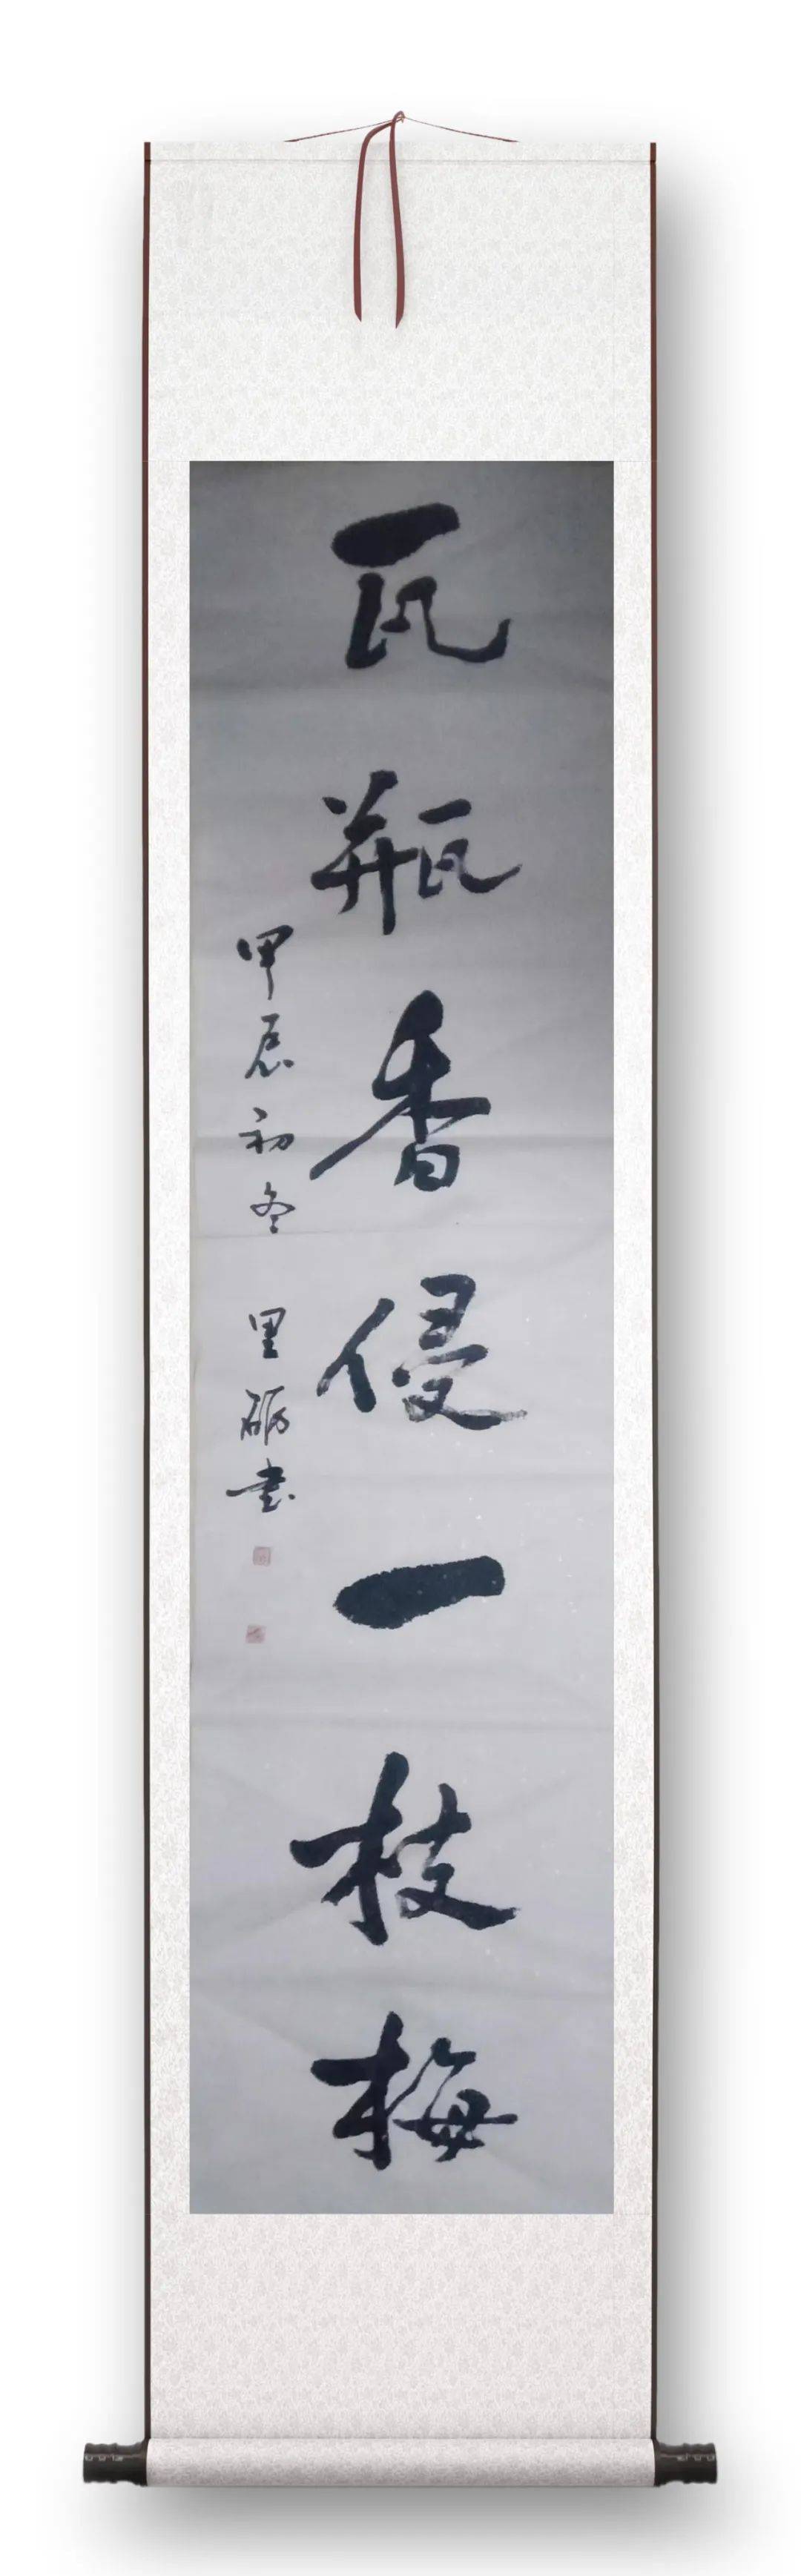 瓦瓶香侵一枝梅
甲辰初冬 里砺书